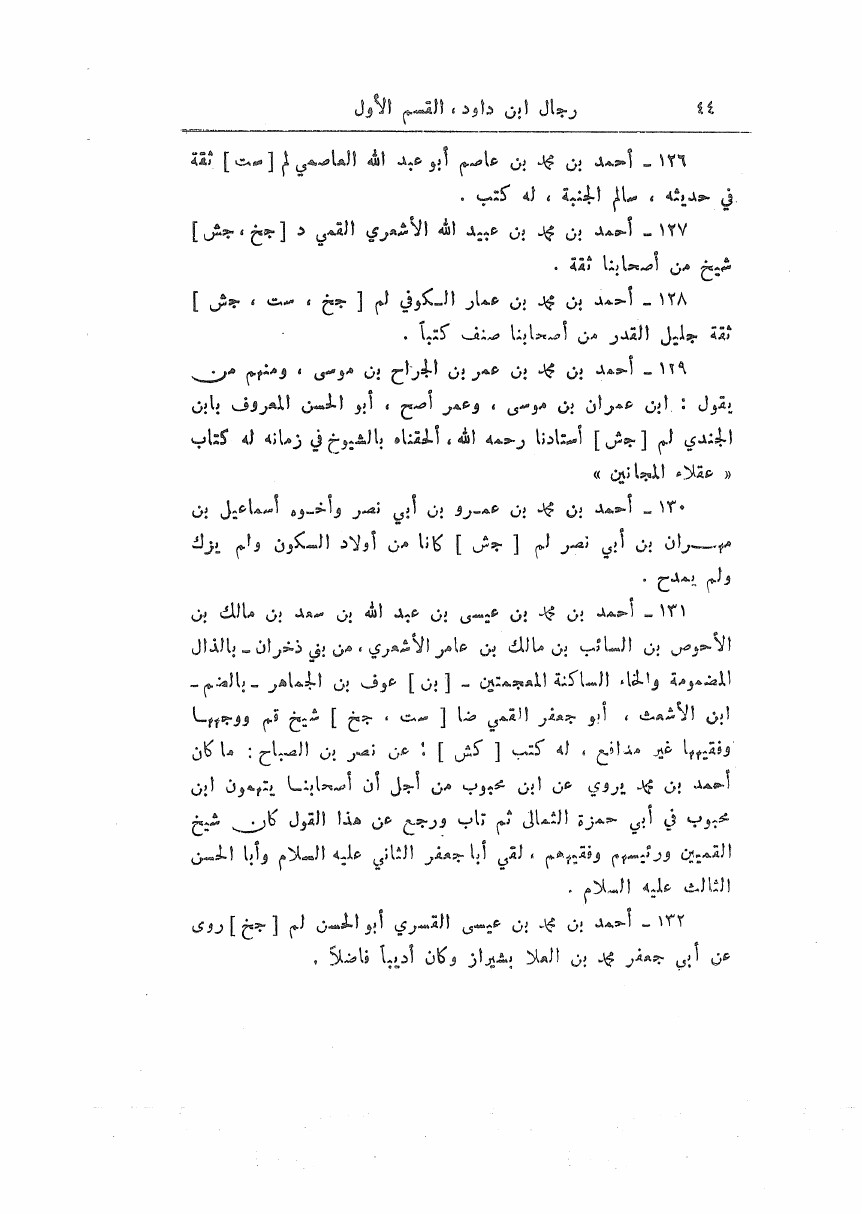 ٤٤ رجال ابن داود ، القسم الأول
١٢٦ ـ أحمد بن محمد بن عاصم أبو عبد الله العاصمي لم [ ست ] ثقة
في حديثه ، سالم الجنبة ، له كتب .
١٢٧ ـ أحمد بن محمد بن عبيد الله الأشعري القمي د [ جخ ، جش ]
شيخ من أصحابنا ثقة .
١٢٨ ـ أحمد بن محمد بن عمار الكوفي لم [ جخ ، ست ، جش ]
ثقة جليل القدر من أصحابنا صنف كتباً .
١٢٩ ـ أحمد بن محمد بن عمر بن الجراح بن موسى ، ومنهم من
يقول : ابن عمران بن موسى ، وعمر أصح ، أبو الحسن المعروف بابن
الجندي لم [ جش ] أستادنا رحمه الله ، ألحقناه بالشيوخ في زمانه له كتاب
« عقلاء المجانين »
١٣٠ ـ أحمد بن محمد بن عمرو بن أبي نصر وأخوه أسماعيل بن
مهران بن أبي نصر لم [ جش ] كانا من أولاد السكون ولم يزك
ولم يمدح .
١٣١ ـ أحمد بن محمد بن عيسى بن عبد الله بن سعد بن مالك بن
الأحوص بن السائب بن مالك بن عامر الأشعري ، من بني ذخران ـ بالذال
المضمومة والخاء الساكنة المعجمتين ـ [ بن ] عوف بن الجماهر ـ بالضم ـ
ابن الأشعث ، أبو جعفر القمي ضا [ ست ، جخ ] شيخ قم ووجهها
وفقيهها غير مدافع ، له كتب [ كش ] : عن نصر بن الصباح : ما كان
أحمد بن محمد يروي عن ابن محبوب من أجل أن أصحابنا يتهمون ابن
محبوب في أبي حمزة الثمالى ثم تاب ورجع عن هذا القول كان شيخ
القميين ورئيسهم وفقيههم ، لقي أبا جعفر الثاني عليه السلام وأبا الحسن
الثالث عليه السلام .
١٣٢ ـ أحمد بن محمد بن عيسى القسري أبو الحسن لم [ جخ ] روى
عن أبي جعفر محمد بن العلا بشيراز وكان أديباً فاضلاً .